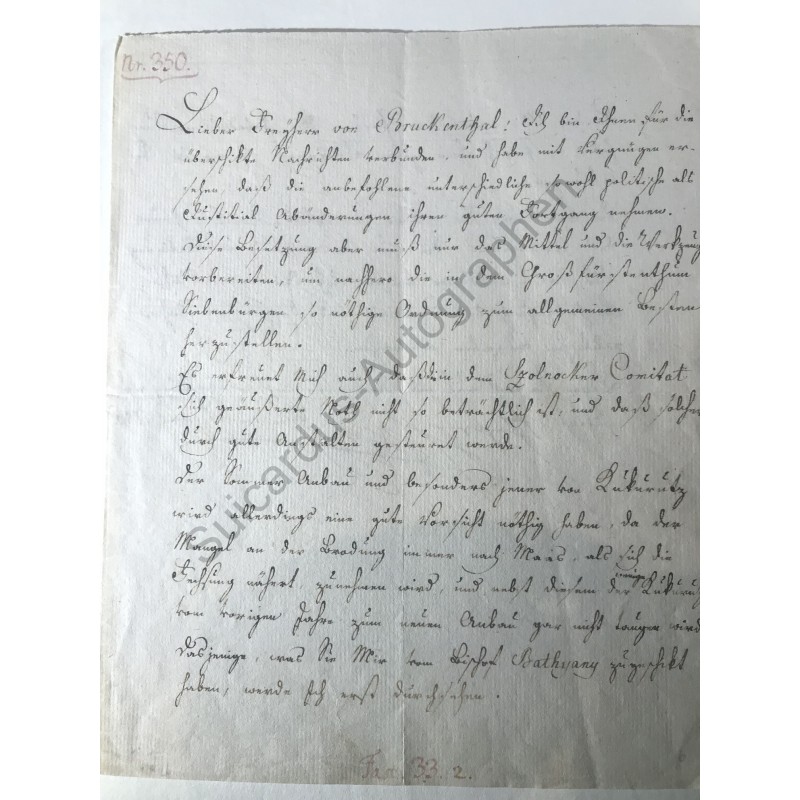 Nr. 350.
Lieber Freyherr von Bruckenthal! Ich bin Ihnen für die
überschikte Nachrichten verbunden, und habe mit Vergnügen er-
sehen, daß die anbefohlene unterschiedliche sowohl politische als
Justitial Abänderungen ihren guten Fortgang nehmen.
Diese Besetzung aber muß nur das Mittel und die Werkzeug
vorbereiten, um nachhero die in dem Großfürstenthum
Siebenbürgen so nöthige Ordnung zum allgemeinen Besten
herzustellen.
Es erfreuet Mich auch, daß die in dem Szolnocker Comitat
sich geäußerte Noth nicht so beträchtlich ist, und daß solcher
durch gute Anstalten gesteuret werde.
Der Sommer Anbau und besonders jener von Kukurutz
wird allerdings eine gute Vorsicht nöthig haben, da der
Mangel an der Brodung immer nach Maas, als sich die
Fechsung nähert, zunehmen wird, und nebst diesem der jenige Kukurutz
vom vorigen Jahre zum neuen Anbau gar nicht taugen wird.
Dasjenige, was Sie Mir vom Bischof Bathyany zugeschikt
haben, werde Ich erst durchsehen.
33. 2.
Suicardus-Autographen